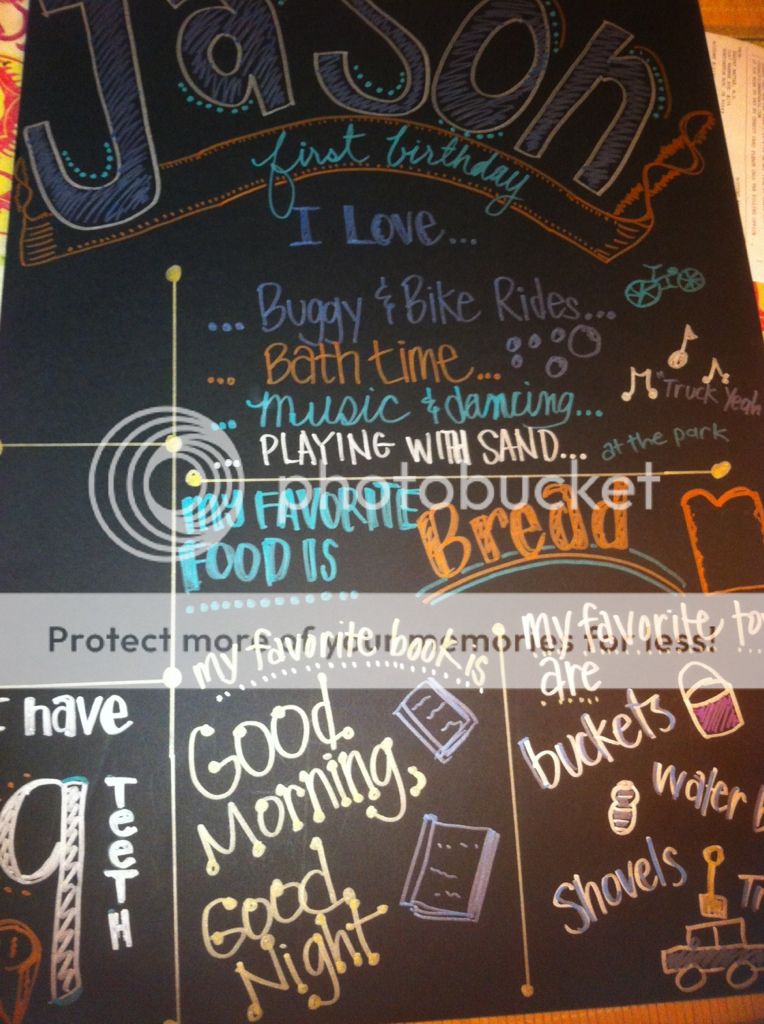 Jason
first birthday
I Love...
... Buggy & Bike Rides...
... Bath time...
... music & dancing...
"Truck Yeah
... PLAYING WITH SAND...
at the park
photobucket
MY FAVORITE
FOOD IS
Bread
Protect more of your memories for less!
my favorite book is
Good
Morning,
Good
Night
my favorite to
are
buckets
water b
Shovels
Tr
I have
9
TeeTH